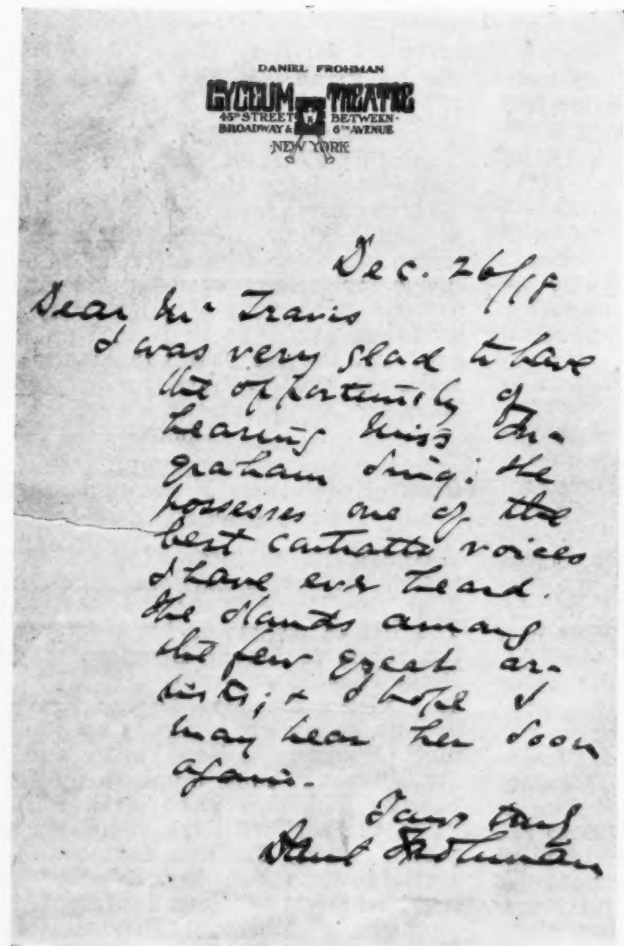 DANIEL FROHMAN
LYCEUM THEATRE
45TH STREET BETWEEN
BROADWAY & 6TH AVENUE
NEW YORK
Dec. 26/18
Dear Mr Travis
I was very glad to have
the opportunity of
hearing Miss In-
graham sing; she
possesses one of the
best contralto voices
I have ever heard.
She stands among
the few great ar-
tists; & I hope I
may hear her soon
again.
Yours truly
Daniel Frohman